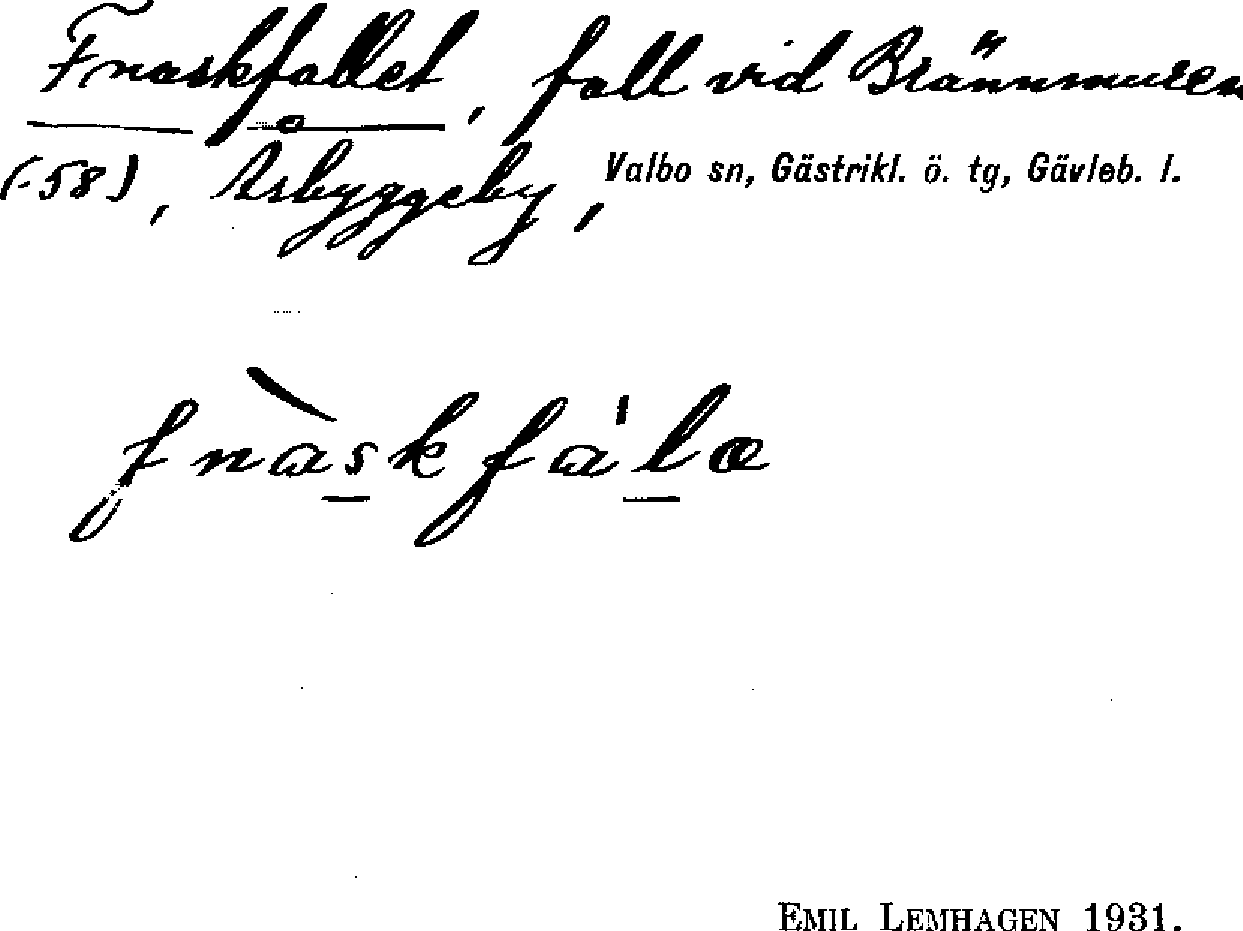 Fnaskfallet, fall vid Brännmuren
(-58), Åsbyggeby, Valbo sn, Gästrikl. ö. tg, Gävleb. l.
fnàskfálæ
EMIL LEMHAGEN 1931.